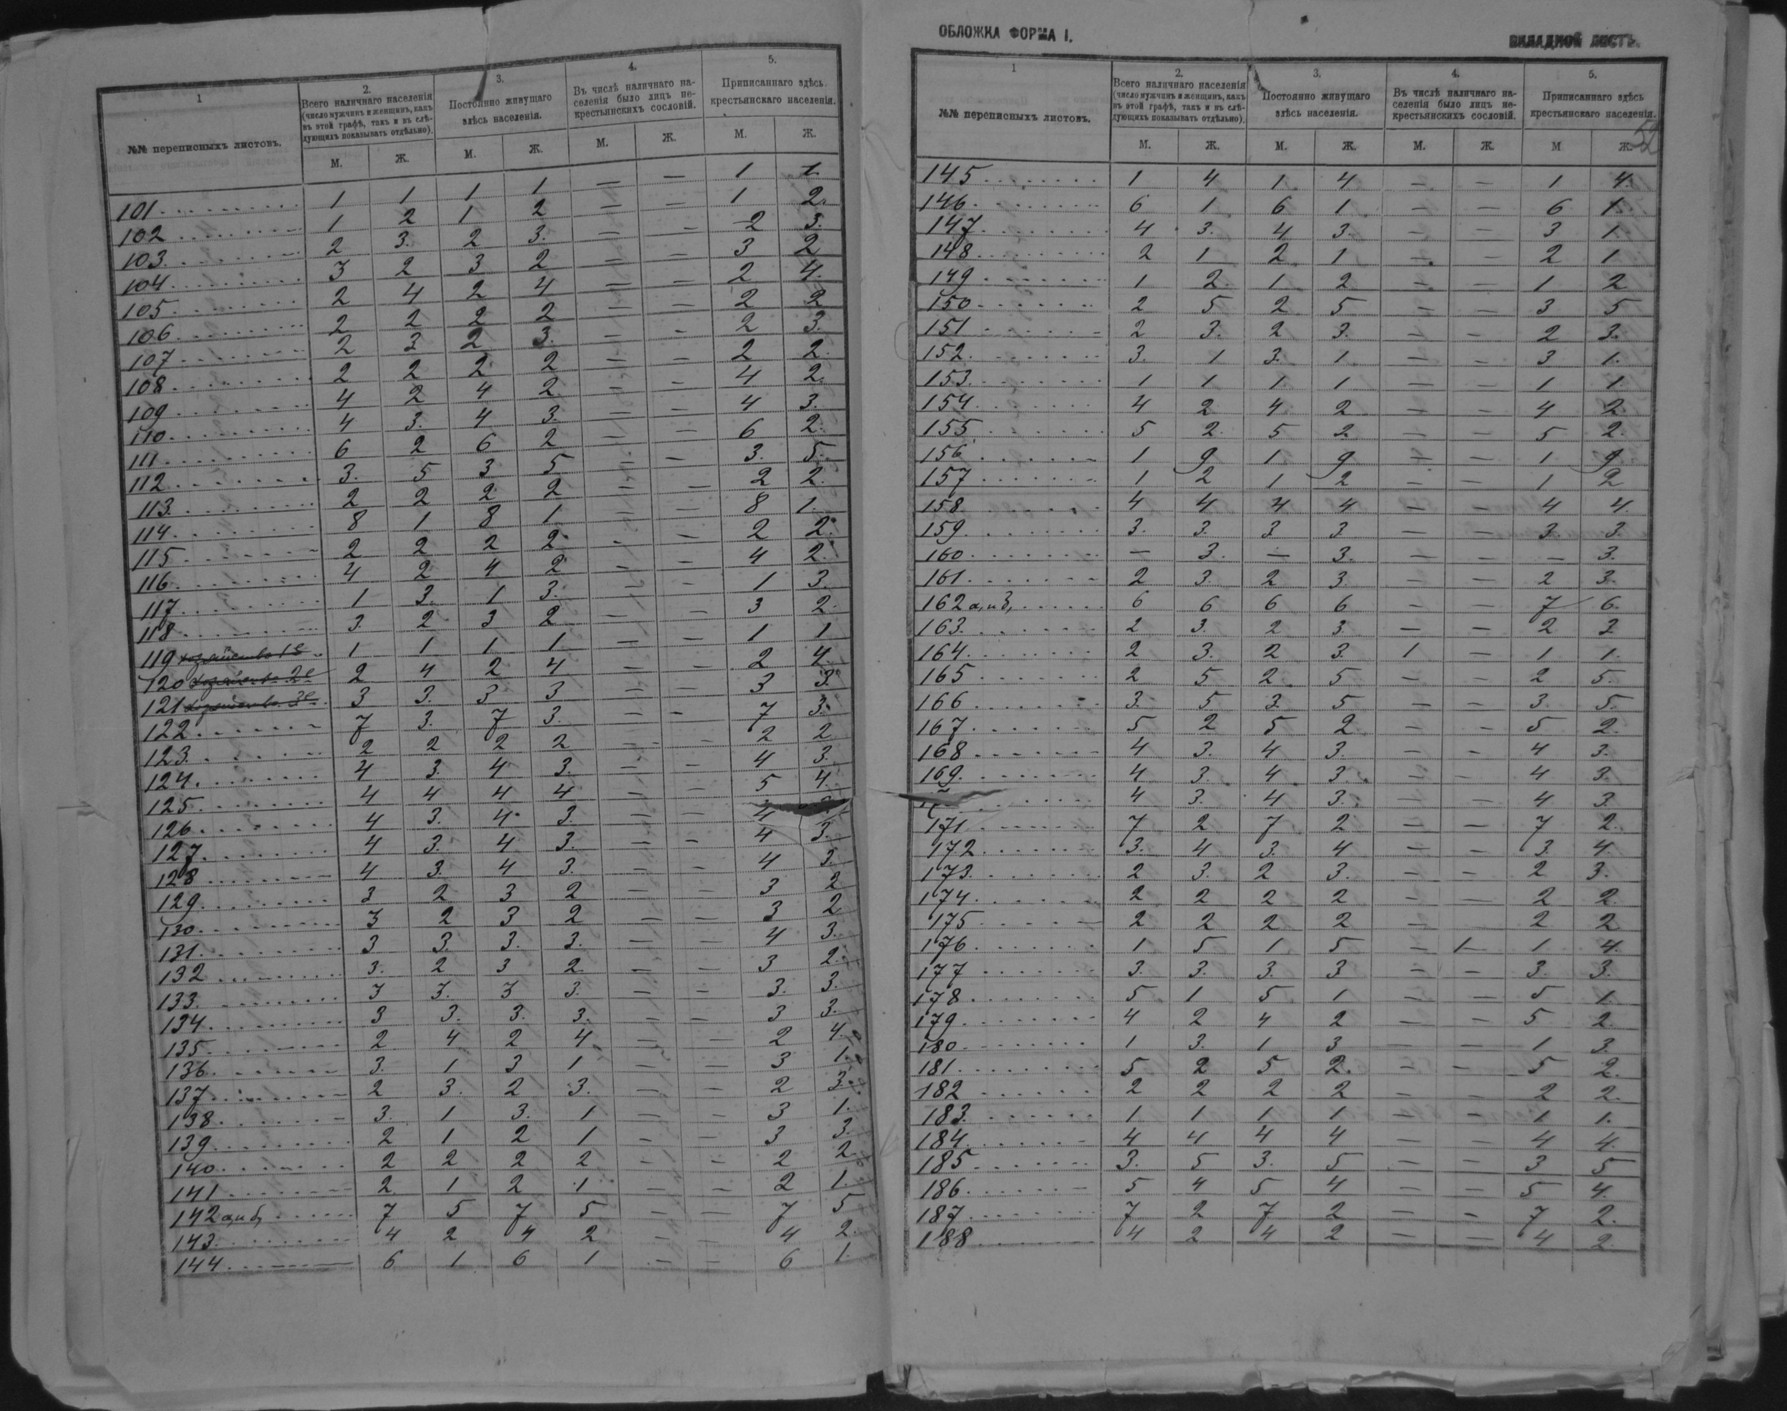 1
2.
Всего наличнаго населенія
(число мужчинъ и женщинъ, какъ
въ этой графѣ, такъ и въ слѣ-
дующихъ показывать отдѣльно).
3.
Постоянно живущаго
здѣсь населенія.
4.
Въ числѣ наличнаго на-
селенія было лицъ не-
крестьянскихъ сословій.
5.
Приписаннаго здѣсь
крестьянскаго населенія.
№№ переписныхъ листовъ.
М. Ж. М. Ж. М. Ж. М. Ж.
101 1 1 1 1 — — 1 1.
102 1 2 1 2 — — 1 2.
103 2 3. 2 3. — — 2 3.
104 3 2 3 2 — — 3 2
105 2 4 2 4 — — 2 4.
106 2 2 2 2 — — 2 2
107 2 3 2 3. — — 2 3.
108 2 2 2 2 — — 2 2.
109 4 2 4 2 — — 4 2.
110 4 3. 4 3. — — 4 3.
111 6 2 6 2 — — 6 2.
112 3. 5 3 5 — — 3. 5.
113 2 2 2 2 — — 2 2.
114 8 1 8 1 — — 8 1.
115 2 2 2 2 — — 2 2.
116 4 2 4 2 — — 4 2.
117 1 3. 1 3. — — 1 3.
118 3. 2 3 2 — — 3 2.
119 хозяйство 1е 1 1 1 1 — — 1 1
120 хозяйство 2е 2 4 2 4 — — 2 4.
121 хозяйство 3е 3 3. 3 3 — — 3 3.
122 7 3. 7 3. — — 7 3.
123 2 2 2 2 — — 2 2
124 4 3. 4 3. — — 4 3.
125 4 4 4 4 — — 5 4.
126 4 3. 4 3. — — 4
127 4 3. 4 3. — — 4 3.
128 4 3. 4 3. — — 4 3.
129 3 2 3 2 — — 3 2
130 3 2 3 2 — — 3 2
131 3 3. 3. 3. — — 4 3.
132 3. 2 3 2 — — 3 2.
133 3 3. 3 3. — — 3. 3.
134 3 3. 3. 3. — — 3 3.
135 2 4 2 4 — — 2 4.
136 3. 1 3 1 — — 3 1.
137 2 3. 2 3. — — 2 3.
138 3. 1 3. 1 — — 3 1.
139 2 1 2 1 — — 3 3.
140 2 2 2 2 — — 2 2.
141 2 1 2 1 — — 2 1.
142 а и б 7 5 7 5 — — 7 5
143 4 2 4 2 — — 4 2.
144 6 1 6 1 — — 6 1.
ОБЛОЖКА ФОРМА I.
ВКЛАДНОЙ ЛИСТЪ.
52
1
2.
Всего наличнаго населенія
(число мужчинъ и женщинъ, какъ
въ этой графѣ, такъ и въ слѣ-
дующихъ показывать отдѣльно).
3.
Постоянно живущаго
здѣсь населенія.
4.
Въ числѣ наличнаго на-
селенія было лицъ не-
крестьянскихъ сословій.
5.
Приписаннаго здѣсь
крестьянскаго населенія.
№№ переписныхъ листовъ.
М. Ж. М. Ж. М. Ж. М Ж.
145 1 4 1 4 — — 1 4.
146 6 1 6 1 — — 6 1.
147 4 3. 4 3. — — 3 1.
148 2 1 2 1 — — 2 1
149 1 2 1 2 — — 1 2
150 2 5 2 5 — — 3 5
151 2 3. 2 3. — — 2 3.
152 3. 1 3. 1 — — 3 1.
153 1 1 1 1 — — 1 1
154 4 2 4 2 — — 4 2.
155 5 2. 5 2 — — 5 2.
156 1 9 1 9 — — 1 9.
157 1 2 1 2 — — 1 2
158 4 4 4 4 — — 4 4.
159 3. 3. 3 3 — — 3. 3.
160 — 3. — 3. — — — 3.
161 2 3. 2 3. — — 2 3.
162 а и б 6 6 6 6 — — 7 6.
163 2 3. 2 3 — — 2 3.
164 2 3. 2 3. 1 — 1 1.
165 2 5 2 5 — — 2 5.
166 3. 5 3. 5 — — 3. 5.
167 5 2 5 2 — — 5 2.
168 4 3. 4 3. — — 4 3.
169 4 3. 4 3. — — 4 3
4 3. 4 3. — — 4 3
171 7 2 7 2 — — 7 2.
172 3. 4 3. 4 — — 3 4.
173 2 3. 2 3. — — 2 3.
174 2 2 2 2 — — 2 2
175 2 2 2 2 — — 2 2
176 1 5 1 5 — 1 1 4.
177 3. 3. 3. 3 — — 3. 3.
178 5 1 5 1 — — 5 1.
179 4 2 4 2 — — 5 2.
180 1 3. 1 3 — — 1 3.
181 5 2 5 2. — — 5 2.
182 2 2 2 2 — — 2 2.
183 1 1 1 1 — — 1 1.
184 4 4 4 4 — — 4 4
185 3. 5 3. 5 — — 3 5
186 5 4 5 4 — — 5 4.
187 7 2 7 2 — — 7 2.
188 4 2 4 2 — — 4 2.